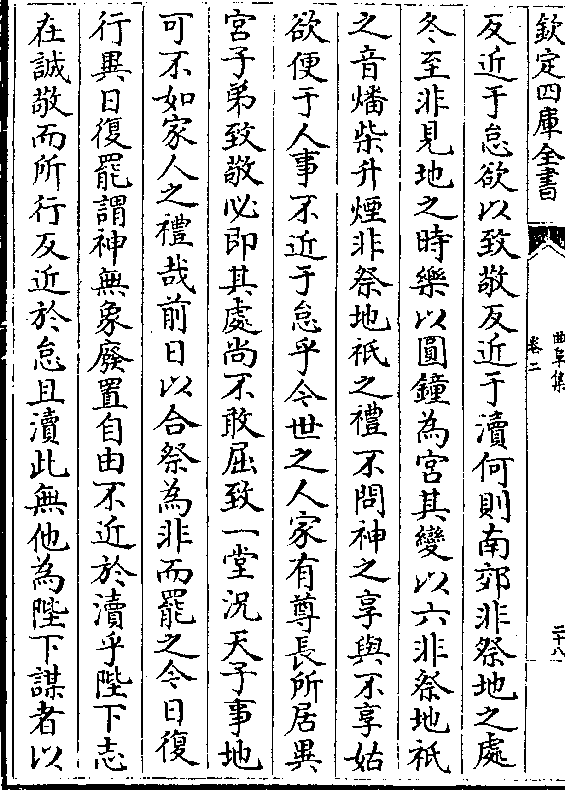 欽定四庫全書
曲阜集
卷二
二十八
反近于怠欲以致敬反近于瀆何則南郊非祭地之處
冬至非見地之時樂以圓鐘為宮其變以六非祭地祇
之音燔柴升煙非祭地祇之禮不問神之享與不享姑
欲便于人事不近于怠乎今世之人家有尊長所居異
宮子弟致敬必即其處尚不敢屈致一堂況天子事地
可不如家人之禮哉前日以合祭為非而罷之今日復
行異日復罷謂神無象廢置自由不近於瀆乎陛下志
在誠敬而所行反近於怠且瀆此無他為陛下謀者以